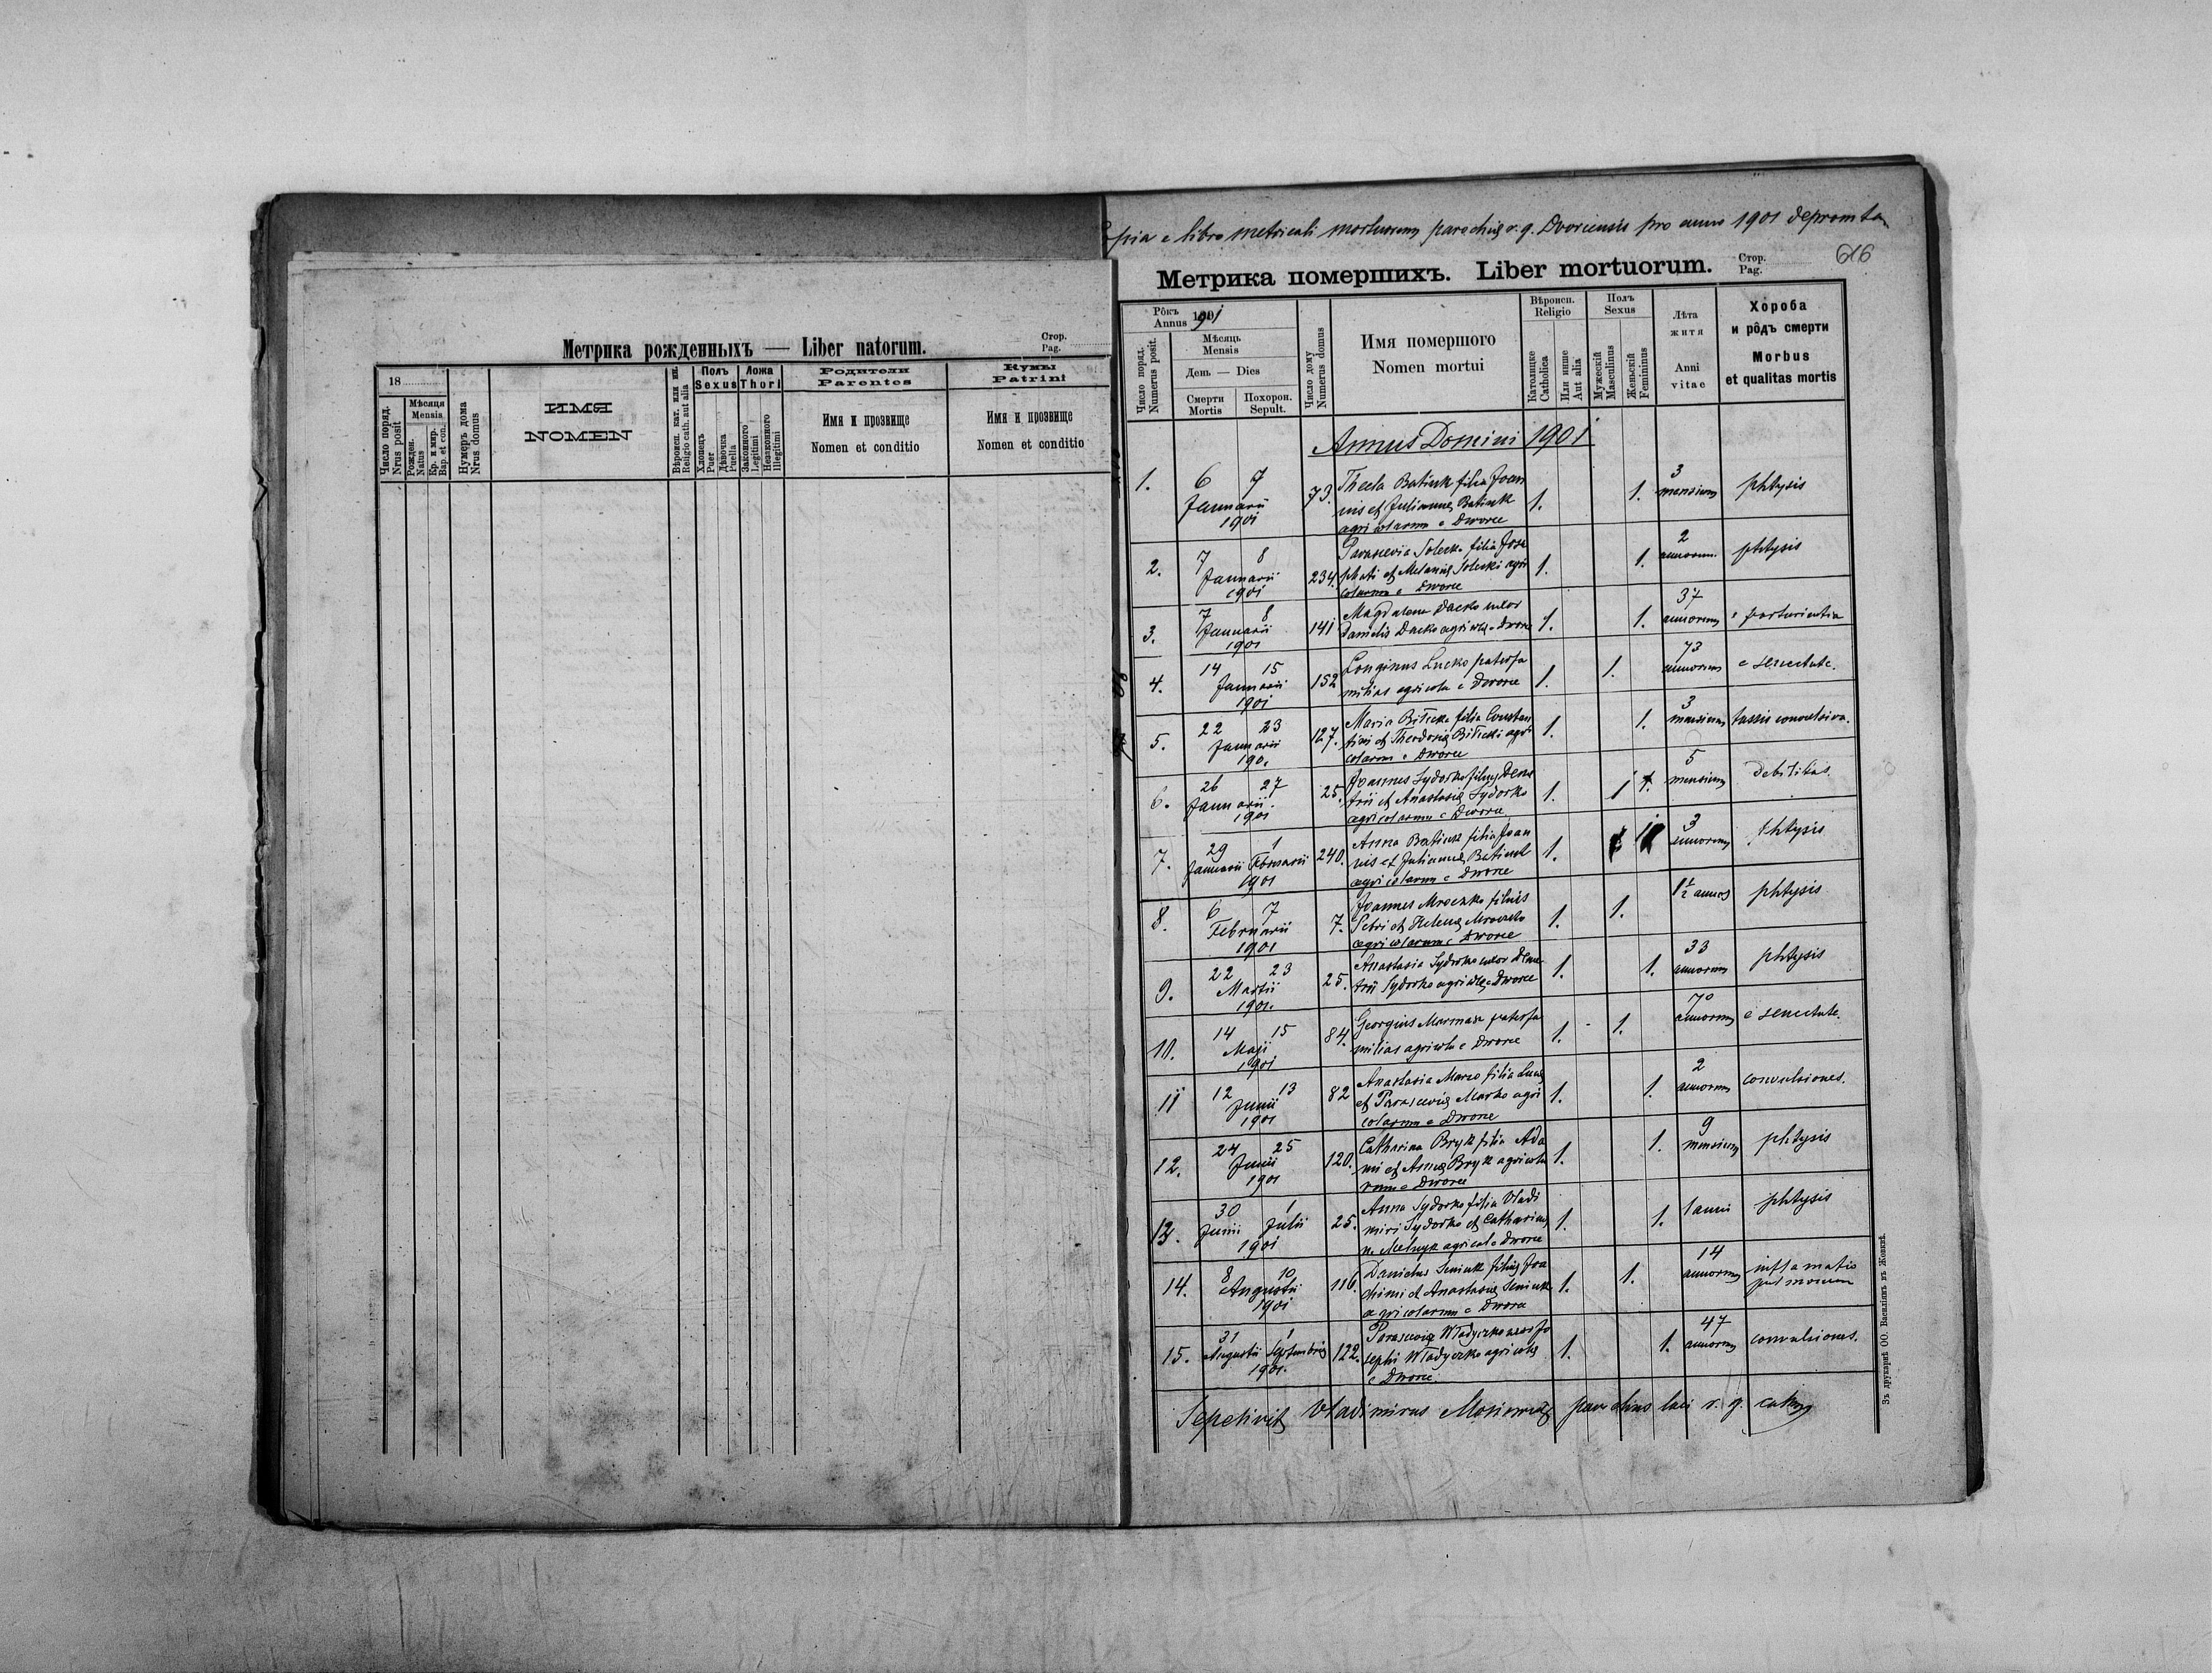 Метрика рожденныхъ — Liber natorum.
Стор.
Pag.
18
Число поряд.
Nrus posit
Мѣсяця
Mensis
Рожден.
Natus
Кр. и мир.
Bap. et con.
Нумеръ дома
Nrus domus
ИМЯ
NOMEN
Вѣроисп. кат. или ин.
Religio cath. aut alia
Полъ
Sexus
Хлопець
Puer
Дѣвочка
Puella
Ложа
Thori
Законного
Legitimi
Незаконного
Illegitimi
Родители
Parentes
Имя и прозвище
Nomen et conditio
Кумы
Patrini
Имя и прозвище
Nomen et conditio
pia e libro metricali mortuorum parochię r. g. Dvorcensis pro anno 1901 depromta
616
Метрика помершихъ. Liber mortuorum.
Стор.
Pag.
Рôкъ
Annus 1901
Число поряд.
Numerus posit.
Мѣсяць
Mensis
День — Dies
Смерти
Mortis
Похорон.
Sepult.
Число дому
Numerus domus
Имя помершого
Nomen mortui
Вѣроисп.
Religio
Католицке
Catholica
Или инше
Aut alia
Полъ
Sexus
Мужескій
Masculinus
Женьскій
Femininus
Лѣта
житя
Anni
vitae
Хороба
и рôдъ смерти
Morbus
et qualitas mortis
Annus Domini 1901
1. 6 7 Januarii 1901 73. Thecla Batiuk filia Joan
nis et Juliannę Batiuk
agricolarum e Dworce 1. 1. 3 mensium phtysis
2. 7 8 Januarii 1901 234. Parascevia Solecka filia Josa
phati et Melanię Solecki agri
colarum e Dworce 1. 1. 2 annorum phtysis
3. 7 8 Januarii 1901 141 Magdalena Dacko uxor
Danielis Dacko agricolę e Dworce 1. 1. 37 annorum e parturientia
4. 14 15 Januarii 1901 152 Longinus Lucko paterfa
milias agricola e Dworce 1. 1. 73 annorum e senectute.
5. 22 23 Januarii 190. 127. Maria Bilecka filia Constan
tini et Theodorię Bilecki agri
colarum e Dworce 1. 1. 3 mensium tussis convulsiva.
6. 26 27 Januarii. 1901 25. Joannes Sydorko filius Deme
trii et Anastasię Sydorko
agricolarum e Dworce 1. 1 5 mensium debilitas.
7. 29 1 Januarii Februarii 1901 240. Anna Batiuk filia Joan
nis et Juliannę Batiuk
agricolarum e Dworce 1. 1 3 annorum phtysis
8. 6 7 Februarii 1901 7. Joannes Mroczko filius
Petri et Helenę Mroczko
agricolarum e Dworce 1. 1. 1½ annos phtysis
9. 22 23 Martii 1901. 25. Anastasia Sydorko uxor Deme
trii Sydorko agricolę e Dworce 1. 1. 33 annorum phtysis
10. 14 15 Maji 1901 84. Georgius Marmasz paterfa
milias agricola e Dworce 1. 1. 70 annorum e senectute.
11 12 13 Junii 1901 82 Anastasia Marko filia Lucę
et Parascevię Marko agri
colarum e Dworce 1. 1. 2 annorum convulsiones.
12. 24 25 Junii 1901 120. Catharina Bryk filia Ada
mi et Annę Bryk agricola
rum e Dworce 1. 1. 9 mensium phtysis
13. 30 1 Junii Julii 1901 25. Anna Sydorko filia Vladi
miri Sydorko et Catharinę
n. Melnyk agricol. e Dworce 1. 1. 1 anni phtysis
14. 8 10 Augustii 1901 116. Danielus Seniuk filius Joa
chimi et Anastasię Seniuk
agricolarum e Dworce 1. 1. 14 annorum inflamatio
pulmonum
15. 31 1 Augustii Septembris 1901. 122. Parascevia Wladyczko uxor Jo
sephi Wladyczko agricolę
e Dworce. 1. 1. 47 annorum convulsiones.
Sepelivit Vladimirus parochus loci r. g. cath.
Зъ друкарнѣ ОО. Василіянъ въ Жовквѣ.